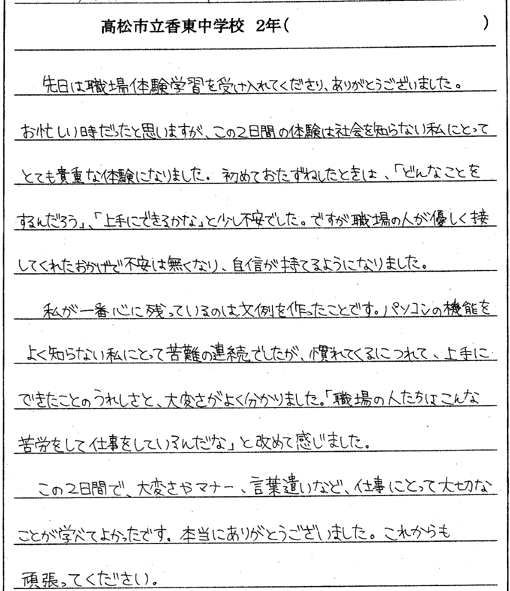 高松市立香東中学校 2年( )
先日は職場体験学習を受け入れてくださり、ありがとうございました。
お忙しい時だったと思いますが、この2日間の体験は社会を知らない私にとって
とても貴重な体験になりました。初めておたずねしたときは、「どんなことを
するんだろう」、「上手にできるかな」と少し不安でした。ですが職場の人が優しく接
してくれたおかげで不安は無くなり、自信が持てるようになりました。
私が一番心に残っているのは文例を作ったことです。パソコンの機能を
よく知らない私にとって苦難の連続でしたが、慣れてくるにつれて、上手に
できたことのうれしさと、大変さがよく分かりました。「職場の人たちはこんな
苦労をして仕事をしているんだな」と改めて感じました。
この2日間で、大変さやマナー、言葉遣いなど、仕事にとって大切な
ことが学べてよかったです。本当にありがとうございました。これからも
頑張ってください。